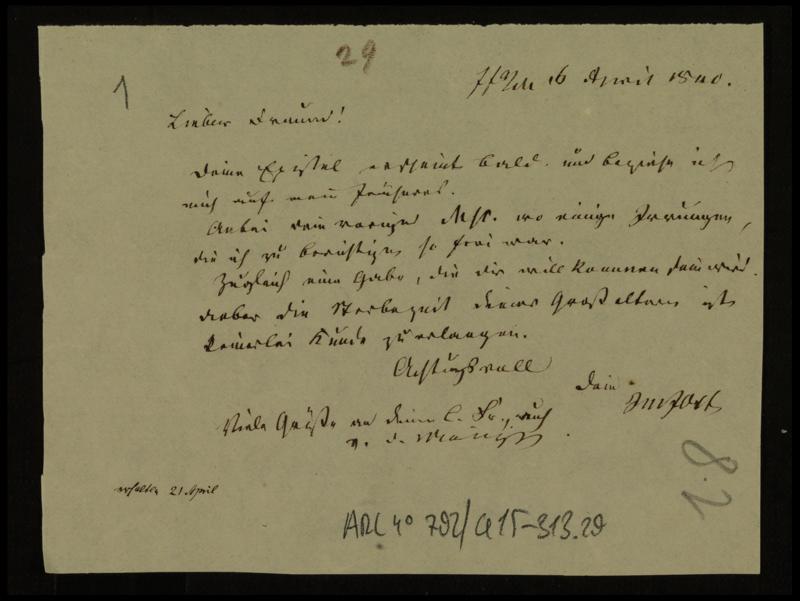 29
1
Ffm 16 April 1840.
Lieber Freund!
Deine Epistel erscheint bald. und beziehe ich
mich auf mein Früheres.
Anbei dein voriges Mst. wo einige Irrungen,
die ich zu berichtigen so frei war.
Zugleich eine Gabe, die dir willkommen sein wird.
Ueber die Sterbezeit deiner Großeltern ist
keinerlei Kunde zu erlangen.
Achtungsvoll
Dein
Viele Grüße an deine l. Fr., auch
v. d.
erhalten 21 April
28
ARC 4° 792/C15-313.29